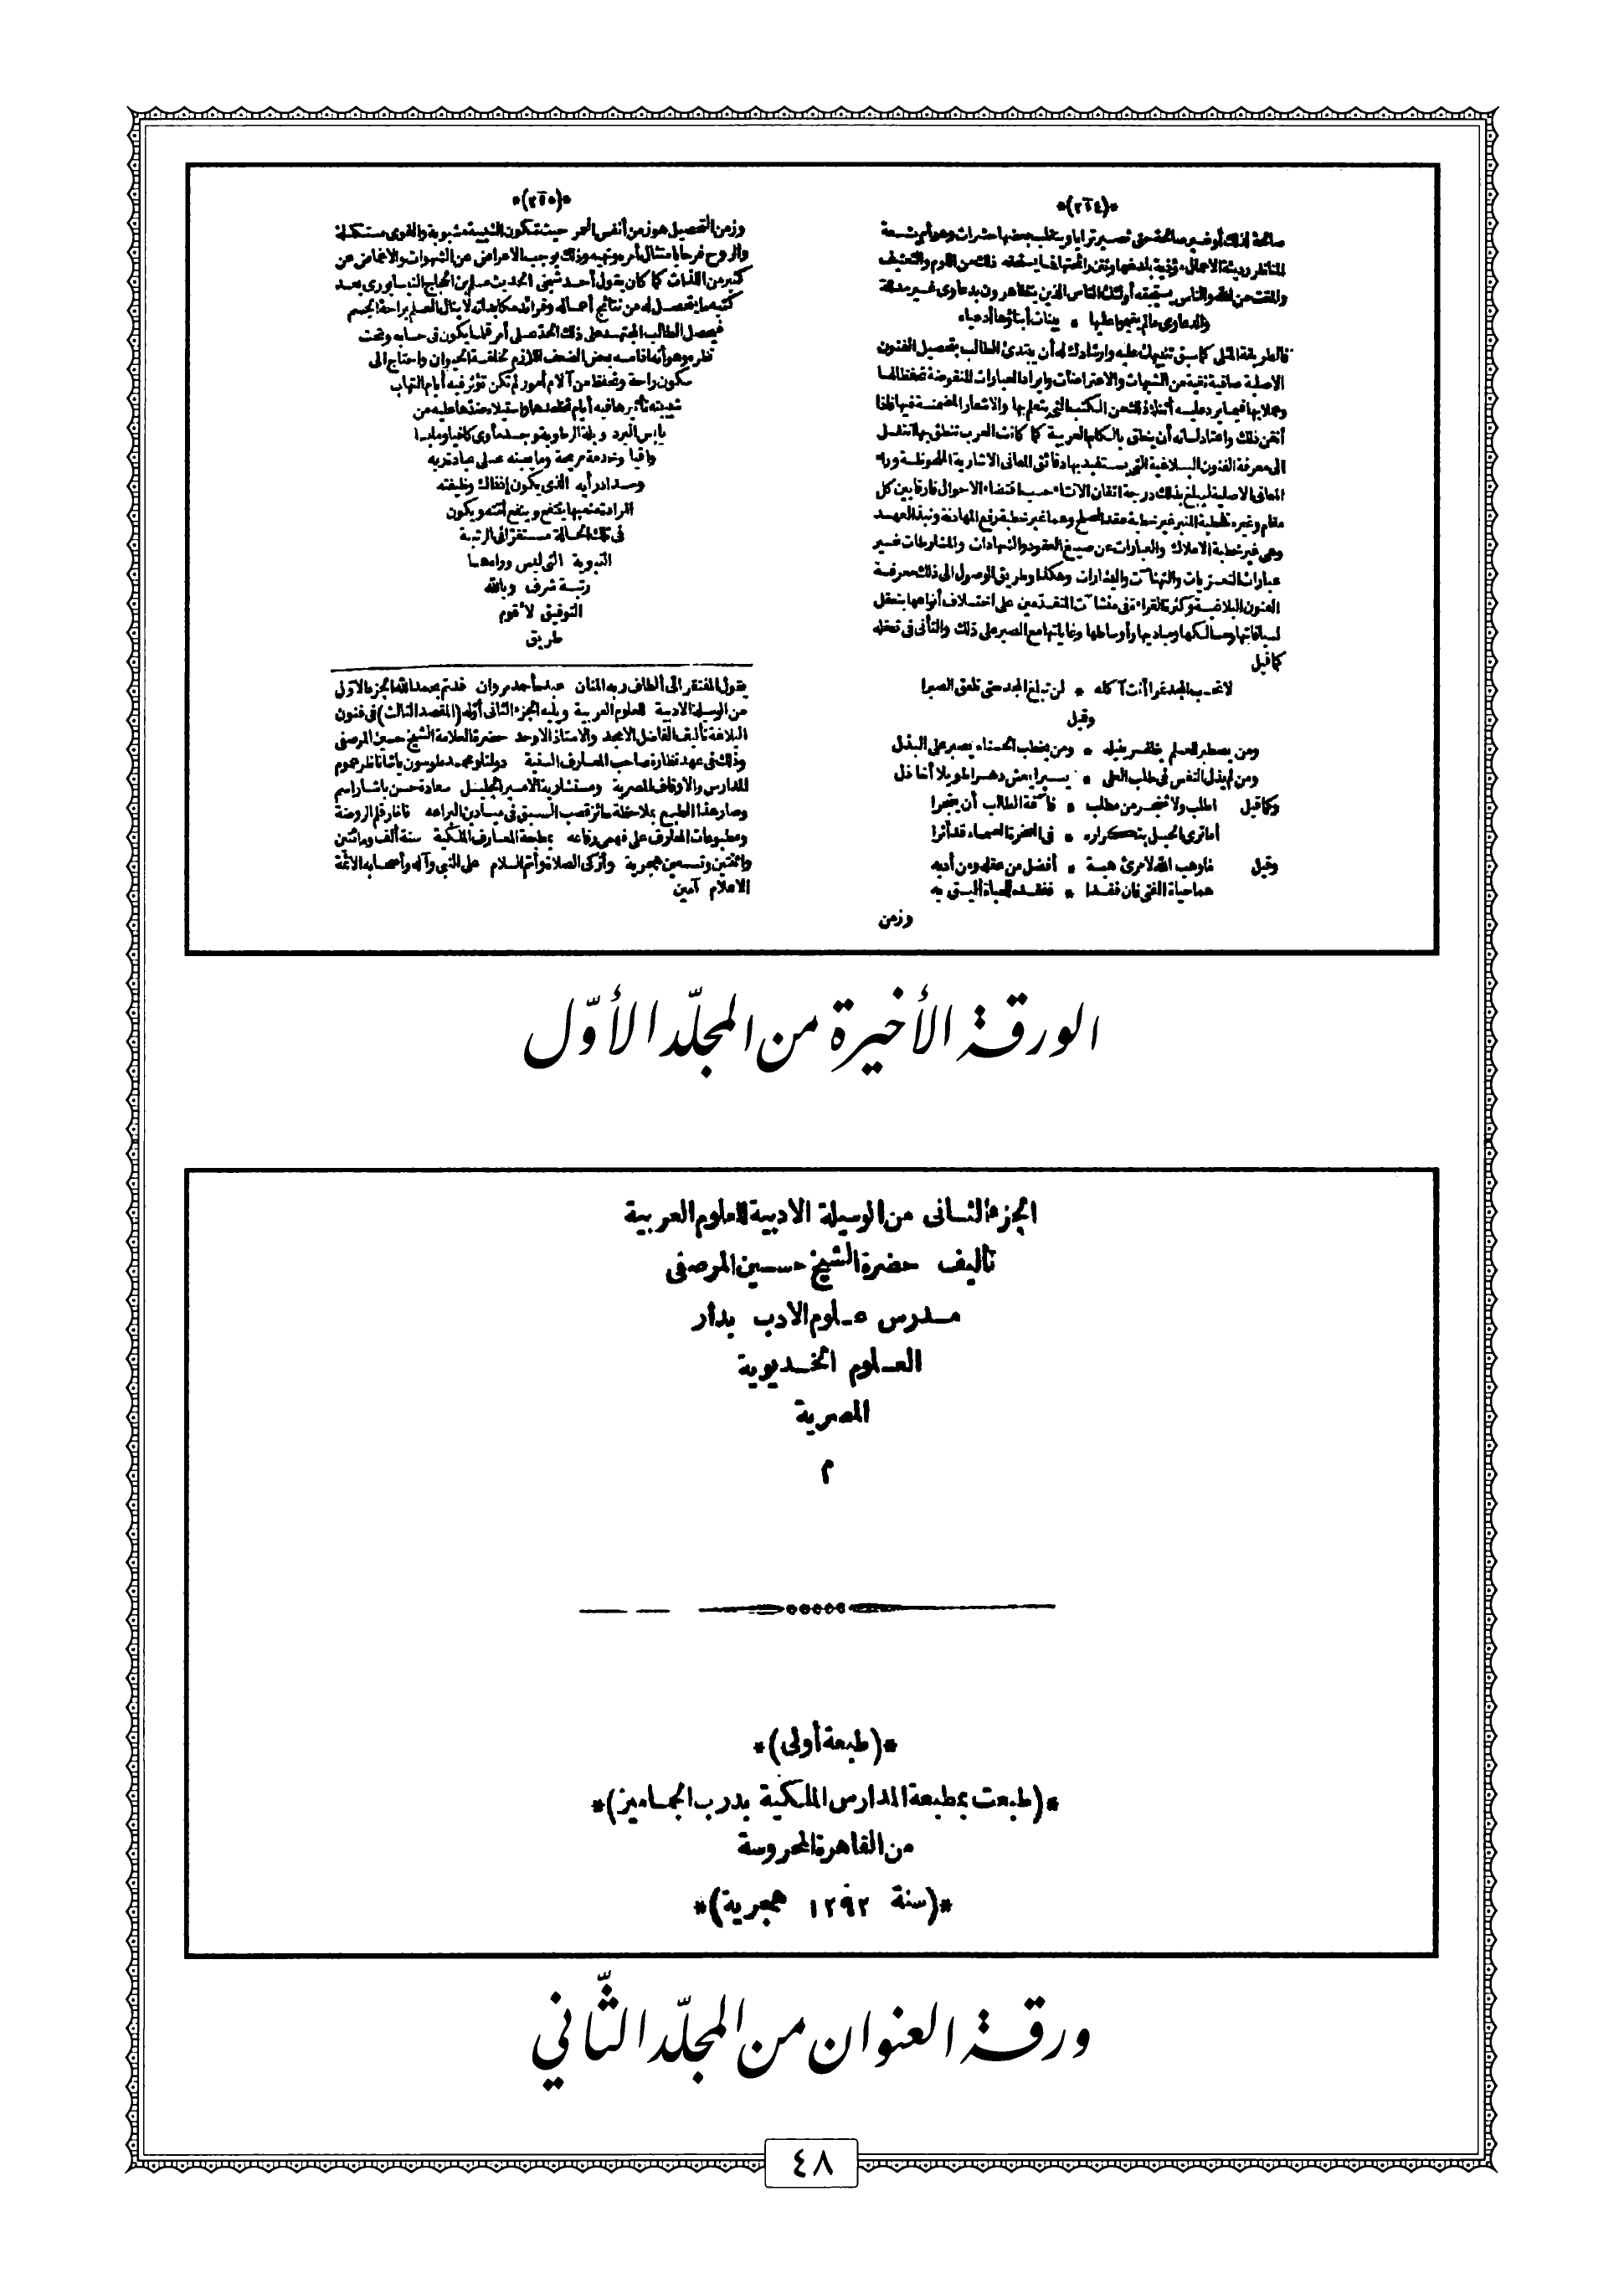 *(٢٥٤)*
صالحة لذلك أو غير صالحة حتى تصير ترابا وينقلب بعضها حشرات وهوام بشعة
المناظر رديئة الاعمال مؤذية بلدغها ونتن رائحتها فما يستحقه ذلك من اللوم والتعنيف
والمقت من الله والناس يستحقه أولئك الناس الذين يتظاهرون بدعاوى غير مدللة
والدعاوى ما لم يقيموا عليها * بينات أبناؤها أدعياء
فالطريقة المثلى كما سبق تنبيهك عليه وارشادك له أن يبتدئ الطالب بتحصيل الفنون
الاصلية صافية نقية من الشبهات والاعتراضات وايراد العبارات المنقوضة تحفظا لها
وعملا بها فيما يرد عليه أثناء ذلك من الكتب التي يتعلم بها والاشعار المضمنة فيها فاذا
أتقن ذلك واعتاد لسانه أن ينطق بالكلم العربية كما كانت العرب تنطق بها انتقل
الى معرفة الفنون البلاغية التي يستفيد بها دقائق المعانى الاشارية الملحوظة وراء
المعانى الاصلية ليبلغ بذلك درجة اتقان الانشاء حسب اقتضاء الاحوال فارقا بين كل
مقام وغيره فخطبة المنبر غير خطبة عقد الصلح وهما غير خطبة رفع المهادنة ونبذ العهد
وهى غير خطبة الاملاك والعبارات عن صيغ العقود والشهادات والمشارطات غير
عبارات التعزيات والتهنآت والبشارات وهكذا وطريق الوصول الى ذلك معرفة
الفنون البلاغية وكثرة القراءة فى منشآت المتقدّمين على اختلاف أنواعها بتعقل
لسياقاتها ومسالكها ومباديها وأوساطها وغاياتها مع الصبر على ذلك والتأنى فى تحصله
كما قيل
لا تحسب المجد تمرا أنت آكله * لن تبلغ المجد حتى تلعق الصبرا
وقيل
ومن يصطبر للعلم يظفر بنيله * ومن يخطب الحسناء يصبر على البذل
ومن لم يذل النفس فى طلب العلى * يسيرا يعش دهرا طويلا أخا ذل
وكما قيل اطلب ولا تضجر من مطلب * فآفة الطالب أن يضجرا
أما ترى الحبل بتكراره * فى الصخرة الصماء قد أثرا
وقيل ما وهب الله لامرئ هبة * أفضل من عقله ومن أدبه
هما حياة الفتى فان فقدا * ففقده للحياة أليق به
وزمن
*(٢٥٥)*
وزمن التحصيل هو زمن أنفس العمر حيث تكون الشبيبة مشبوبة والقوى مستكملة
والروح فرحا بامتثال أمره ونهيه وذلك يوجب الاعراض عن الشهوات والاغماض عن
كثير من اللذات كما كان يقول أحد شيخى الحديث مسلم بن الحجاج النيسابورى بعد
كتبه ما يتحصل له من نتائج أعماله وفرائد مكابداته لا ينال العلم براحة الجسم
فيحصل الطالب المجتهد على ذلك الحد على أمر قلما يكون فى حسابه وتحت
نظره وهو أنه اذا مسه بعض الضعف اللازم لخلقة الحيوان واحتاج الى
سكون وراحة وتحفظ من آلام أمور لم تكن تؤثر فيه أيام التهاب
شبيبته تأثيرها فيه أيام تقاعدها واستيلاء ضدها عليه من
يابس البرد وبلة الرطوبة وجد مأوى كافيا وملبسا
واقيا وخدمة مريحة وما يعينه على عبادة ربه
وسداد رأيه الذى يكون إذ ذاك وظيفته
المرادة منه بها ينتفع وينفع أمته ويكون
فى تلك الحالة مستقرا فى الرتبة
النبوية التى ليس وراءها
رتبة شرف وبالله
التوفيق لأقوم
طريق
يقول المفتقر الى ألطاف ربه المنان عبده أحمد مروان قد تم بحمد الله الجزء الاوّل
من الوسيلة الادبية للعلوم العربية ويليه الجزء الثانى أوله (المقصد الثالث) فى فنون
البلاغة تأليف الفاضل الامجد والاستاذ الاوحد حضرة العلامة الشيخ حسين المرصفى
وذلك فى عهد نظارة صاحب المعارف السنية دولتلو محمد طوسون باشا ناظر عموم
المدارس والاوقاف المصرية ومستشاريه الامير الجليل سعادة حسن باشا راسم
وصار هذا الطبع بملاحظة حائز قصب السبق فى ميادين البراعه ناظر قلم الروضة
ومطبوعات المعارف على فهمى رفاعه بمطبعة المعارف الملكية سنة ألف ومائتين
واثنتين وتسعين هجرية وأزكى الصلاة وأتم السلام على النبى وآله وأصحابه الائمة
الاعلام آمين
الورقة الأخيرة من المجلّد الأوّل
الجزء الثانى من الوسيلة الادبية للعلوم العربية
تأليف حضرة الشيخ حسين المرصفى
مدرس علوم الادب بدار
العلوم الخديوية
المصرية
م
*(طبعة أولى)*
*(طبعت بمطبعة المدارس الملكية بدرب الجماميز)*
من القاهرة المحروسة
*(سنة ١٢٩٢ هجرية)*
ورقة العنوان من المجلّد الثّاني
٤٨